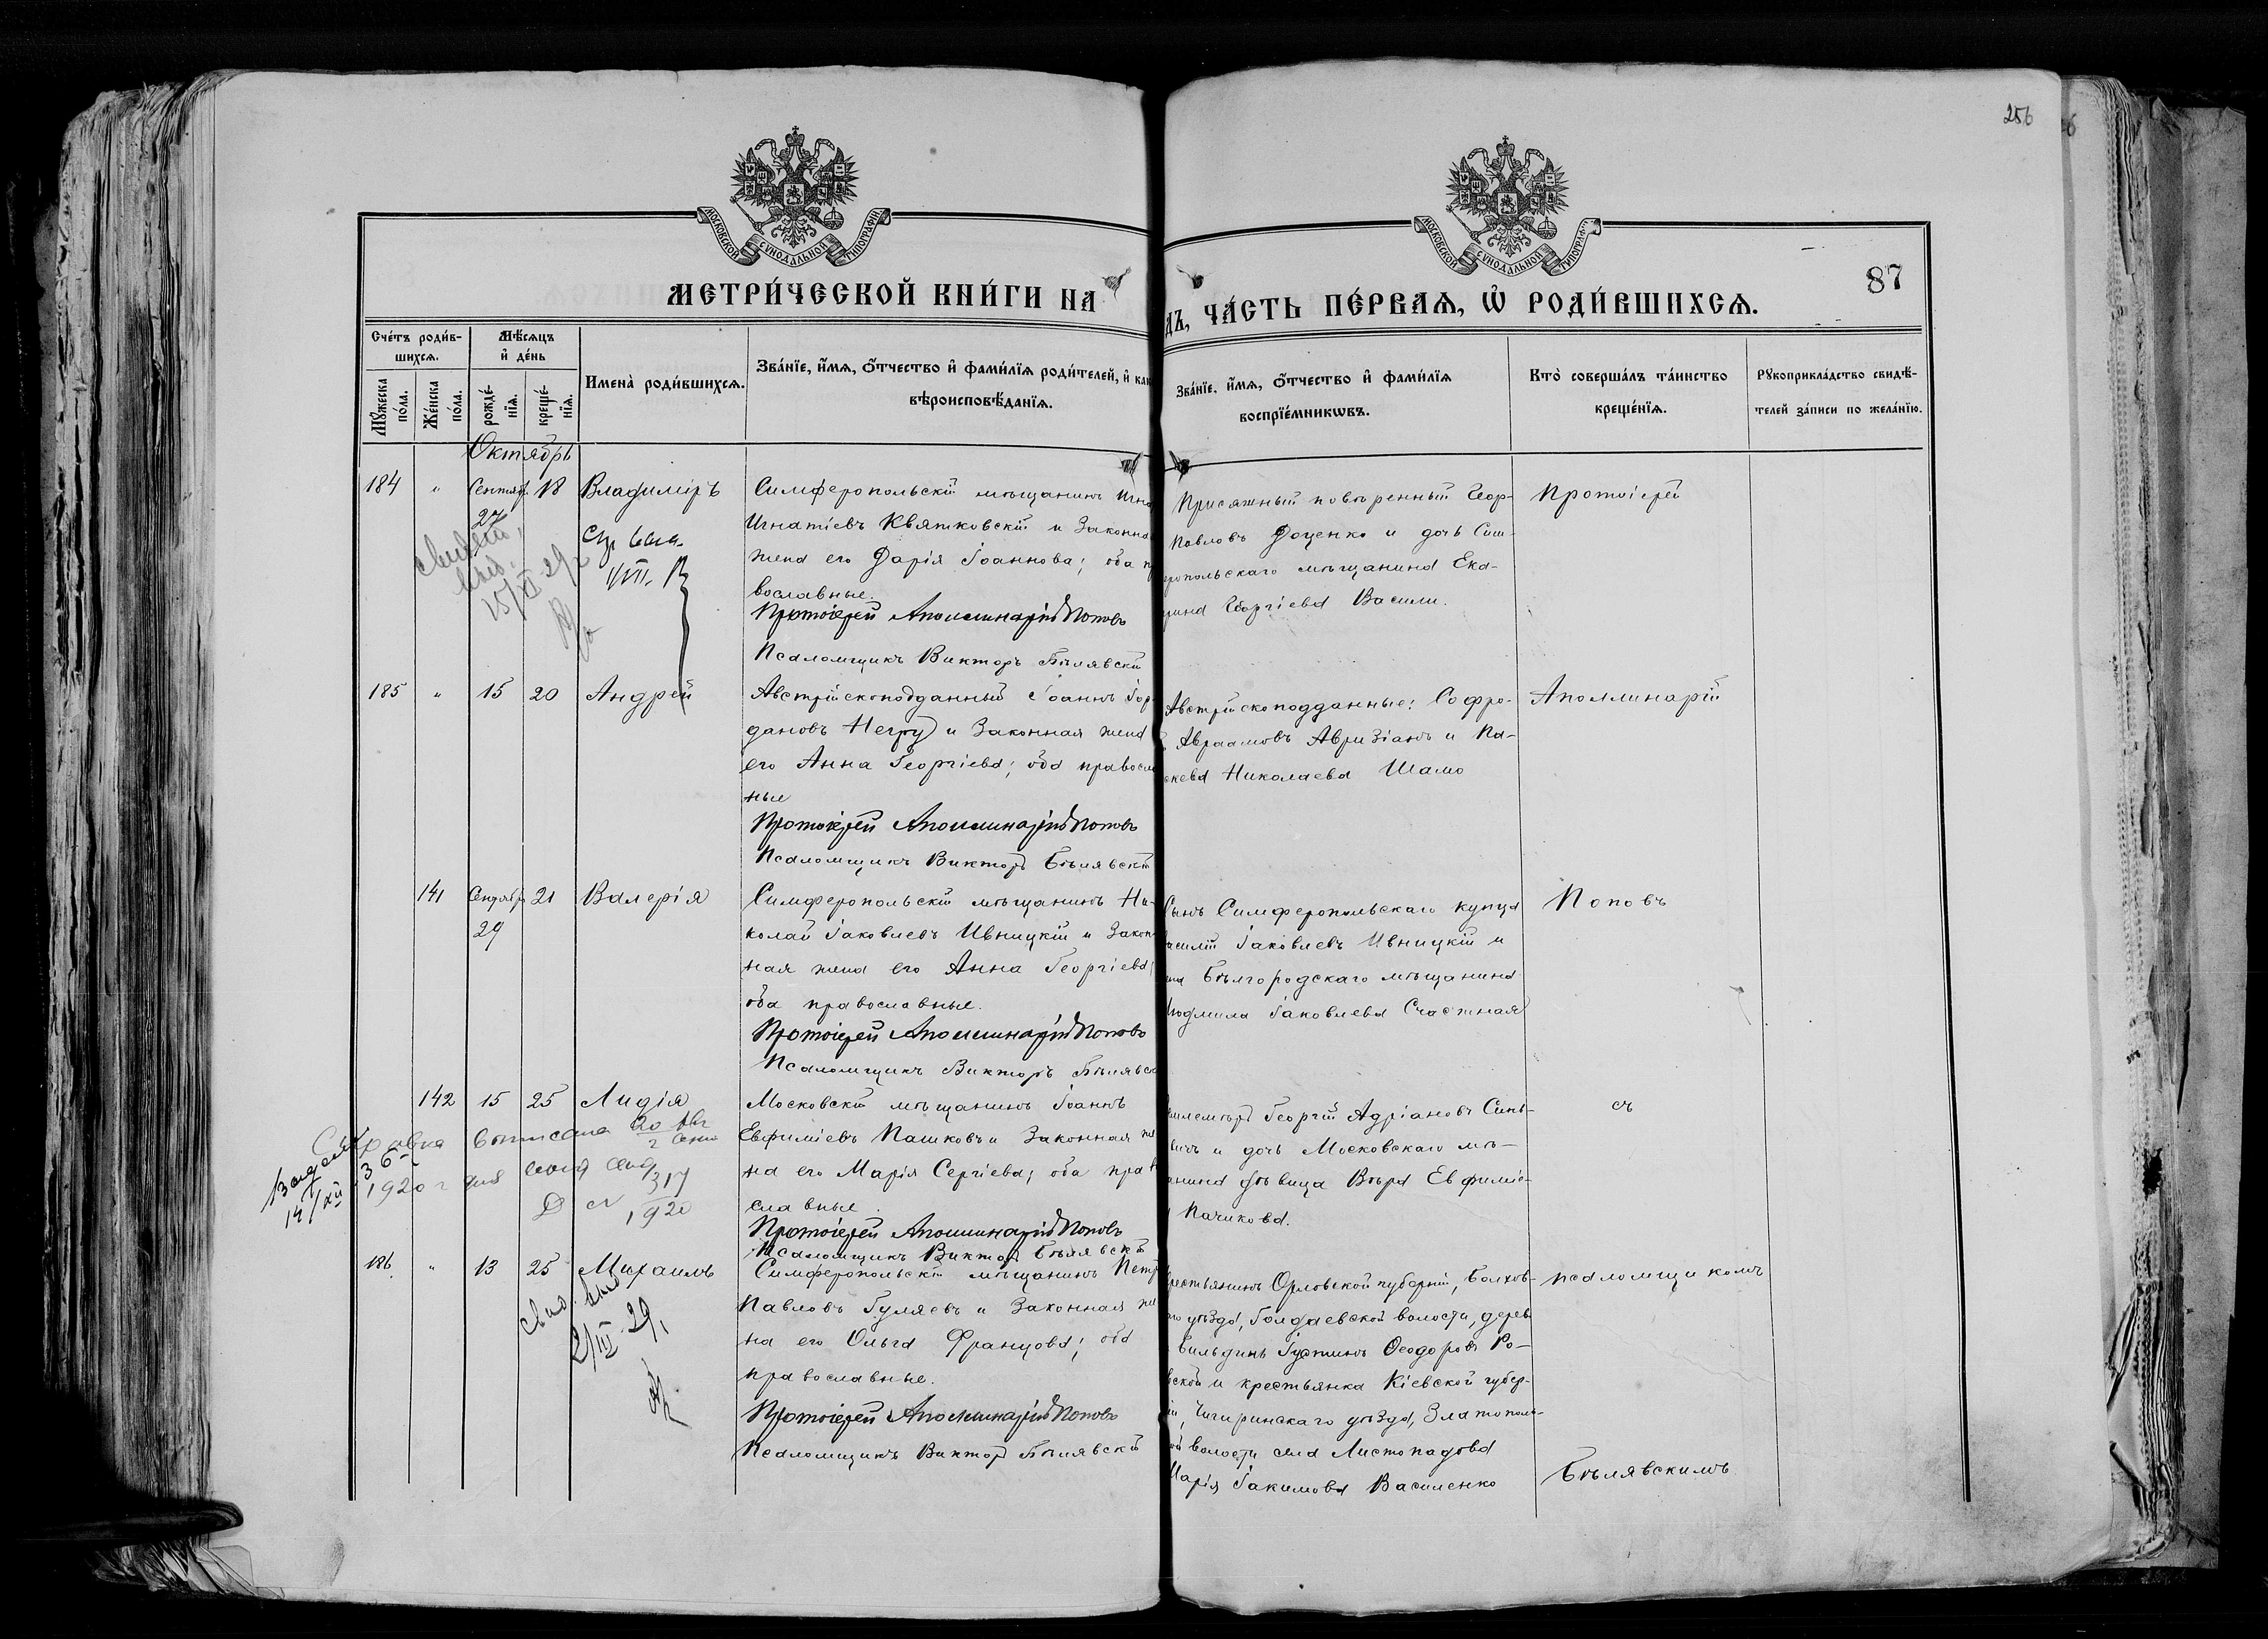 256
МОСКОВСКОЙ СѴНОДАЛЬНОЙ ТИПОГРАФІИ
МОСКОВСКОЙ СѴНОДАЛЬНОЙ ТИПОГРАФІ
87
МЕТРИ́ЧЕСКОЙ КНИ́ГИ НА
ДЪ, ЧА́СТЬ ПЕ́РВАѦ, Ѡ҆ РОДИ́ВШИХСѦ.
Сче́тъ роди́в-
шихсѧ.
Мѣ́сѧцъ
и҆ де́нь
Мꙋжеска
по́ла.
Же́нска
по́ла.
рожде́-
нїѧ.
креще́-
нїѧ.
Имена̀ роди́вшихсѧ.
Зва́нїе, и҆́мѧ, о҆́тчество и҆ фами́лїѧ роди́телей, и҆ как
вѣроисповѣ́данїѧ.
Зва́нїе, и҆́мѧ, о҆́тчество и҆ фами́лїѧ
воспрїе́мникѡвъ.
Кто̀ соверша́лъ та́инство
креще́нїѧ.
Рꙋкоприкла́дство свидѣ́-
телей за́писи по жела́нїю.
Октябрь
184 " Сентяб. 18 Владиміръ
27
Симферопольскій мѣщанинъ Игна
Игнатіевъ Квятковскій и законна
жена его Дарія Іоаннова; оба п
вославные.
Протоіерей Аполлинарій Поповъ
Псаломщикъ Викторъ Бѣлявскій
Присяжный повѣренный Геор-
Павловъ Доценко и дочь Сим-
ропольскаго мѣщанина Ека-
рина Георгіева Васили.
Протоіерей
15/VI 29
185 " 15 20 Андрей
Австрійскоподданный Іоаннъ Іор-
дановъ Негру и законная жена
его Анна Георгіева; оба правосла
ные
Протоіерей Аполлинарій Поповъ
Псаломщикъ Викторъ Бѣлявскій
Австрійскоподданные: Софро-
Авраамовъ Авризіанъ и Па-
скева Николаева Шамо
Аполлинарій
141 Сентябр 21 Валерія
29
Симферопольскій мѣщанинъ Ни-
колай Іаковлевъ Ивницкій и закон-
ная жена его Анна Георгіева;
оба православные.
Протоіерей Аполлинарій Поповъ
Псаломщикъ Викторъ Бѣлявск
Сынъ Симферопольскаго купца
асилій Іаковлевъ Ивницкій и
Бѣлгородскаго мѣщанина
Людмила Іаковлева Счастная
Поповъ
142 15 25 Лидія
Московскій мѣщанинъ Іоаннъ
Евфиміевъ Пашковъ и законная же
на его Марія Сергіева; оба прав
славные.
Протоіерей Аполлинарій Поповъ
Псаломщикъ Викторъ Бѣлявскій
Землемѣръ Георгій Адріановъ Синь-
вичъ и дочь Московскаго мѣ-
анина дѣвица Вѣра Евфиміе-
Пашкова.
съ
14/XII
1920 г
317
1920
186 " 13 25 Михаилъ
Симферопольскій мѣщанинъ Петр
Павловъ Гуляевъ и законная же
на его Ольга Францова; оба
православные.
Протоіерей Аполлинарій Поповъ
Псаломщикъ Викторъ Бѣлявскій
рестьянинъ Орловской губерніи, Болхов-
го уѣзда, Голдаевской волости, дерев
Бильдинъ Іустинъ Ѳеодоровъ Ро-
вской и крестьянка Кіевской губер-
іи, Чигиринскаго уѣзда, Златополь-
ой волости села Листопадова
Марія Іакимова Василенко
псаломщикомъ
Бѣлявскимъ
2/III 29